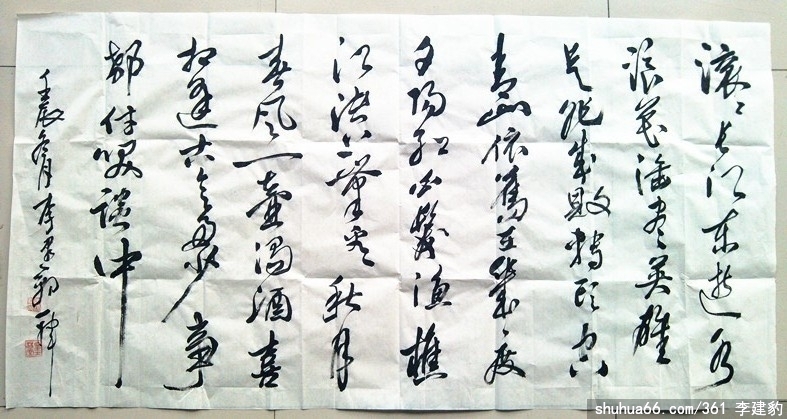 滚滚长江东逝水
浪花淘尽英雄
是非成敗转头空
青山依舊在幾度
夕陽红白髮渔樵
江渚上惯看秋月
春风一壶浊酒喜
相逢古今多少事
都付笑谈中
壬辰冬月李建豹书
shuhua66.com/361 李建豹